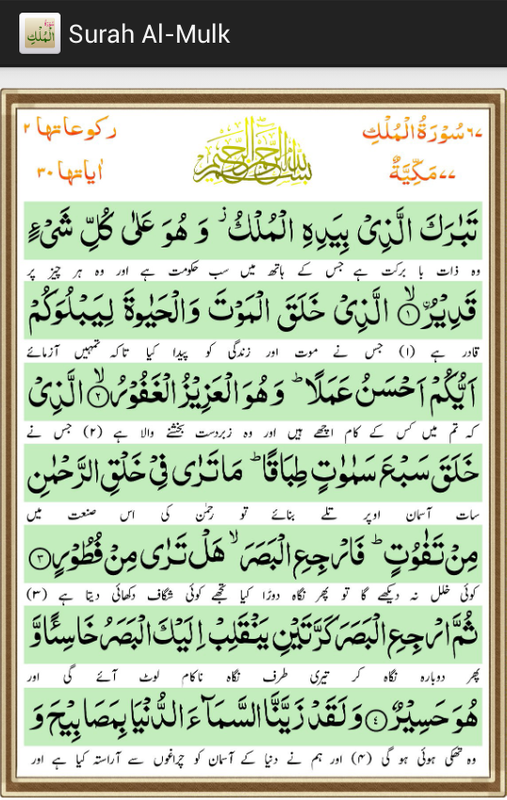 Surah Al-Mulk
۶۷ سُوۡرَةُ الۡمُلۡكِ
رکوعاتها ۲
بِسْمِ اللهِ الرَّحْمٰنِ الرَّحِيْمِ
۷۷ مَكِّيَّةٌ
اٰیاتها ۳۰
تَبٰرَكَ الَّذِىۡ بِيَدِهِ الۡمُلۡكُ ۫ وَ هُوَ عَلٰى كُلِّ شَىۡءٍ
وہ ذات با برکت ہے جس کے ہاتھ میں سب حکومت ہے اور وہ ہر چیز پر
قَدِيۡرُۨ ۙ﴿۱﴾ الَّذِىۡ خَلَقَ الۡمَوۡتَ وَالۡحَيٰوةَ لِيَبۡلُوَكُمۡ
قادر ہے (۱) جس نے موت اور زندگی کو پیدا کیا تاکہ تمہیں آزمائے
اَيُّكُمۡ اَحۡسَنُ عَمَلًا ؕ وَ هُوَ الۡعَزِيۡزُ الۡغَفُوۡرُ ۙ﴿۲﴾ الَّذِىۡ
کہ تم میں کس کے کام اچھے ہیں اور وہ زبردست بخشنے والا ہے (۲) جس نے
خَلَقَ سَبۡعَ سَمٰوٰتٍ طِبَاقًا ؕ مَا تَرٰى فِىۡ خَلۡقِ الرَّحۡمٰنِ
سات آسمان اوپر تلے بنائے تو رحمٰن کی اس صنعت میں
مِنۡ تَفٰوُتٍ ؕ فَارۡجِعِ الۡبَصَرَ ۙ هَلۡ تَرٰى مِنۡ فُطُوۡرٍ ﴿۳﴾
کوئی خلل نہ دیکھے گا تو پھر نگاہ دوڑا کیا تجھے کوئی شگاف دکھائی دیتا ہے (۳)
ثُمَّ ارۡجِعِ الۡبَصَرَ كَرَّتَيۡنِ يَنۡقَلِبۡ اِلَيۡكَ الۡبَصَرُ خَاسِئًا وَّ
پھر دوبارہ نگاہ کر تیری طرف نگاہ ناکام لوٹ آئے گی اور
هُوَ حَسِيۡرٌ ﴿۴﴾ وَ لَقَدۡ زَيَّنَّا السَّمَآءَ الدُّنۡيَا بِمَصَابِيۡحَ وَ
وہ تھکی ہوئی ہو گی (۴) اور ہم نے دنیا کے آسمان کو چراغوں سے آراستہ کیا ہے اور